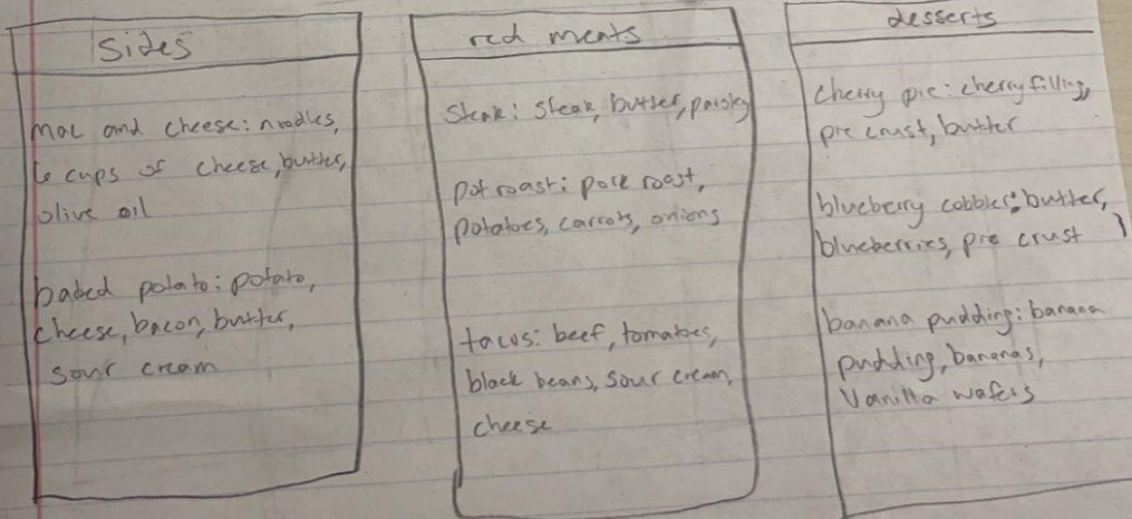 Sides
mac and cheese: noodles,
6 cups of cheese, butter,
olive oil
baked potato: potato,
cheese, bacon, butter,
sour cream
red meats
Steak: steak, butter,
pot roast: pork roast,
potatoes, carrots, onions
tacos: beef, tomatoes,
black beans, sour cream,
cheese
desserts
cherry pie: cherry filling,
pie crust, butter
blueberry cobbler: butter,
blueberries, pie crust
banana pudding: banana
pudding, bananas,
Vanilla wafers